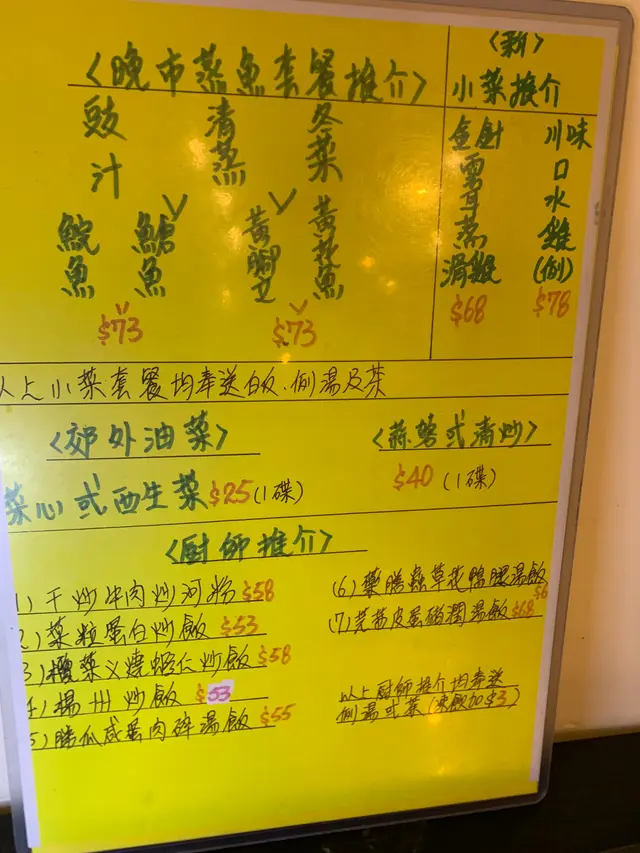 〈晚市蒸魚套餐推介〉
豉汁
清蒸
冬菜
鯇魚
鱠魚
黃腳立
黃花魚
$73
$73
〈新〉
小菜推介
金針雲耳蒸滑雞
$68
川味口水雞(例)
$78
以上小菜套餐均奉送白飯.例湯及茶
〈郊外油菜〉
菜心或西生菜$25(1碟)
〈蒜蓉或清炒〉
$40 (1碟)
〈厨师推介〉
1)干炒牛肉炒河粉$58
2)菜粒蛋白炒飯$53
3)欖菜义燒蝦仁炒飯$58
4)揚州炒飯$53
5)勝瓜咸蛋肉碎湯飯$55
(6)藥膳蟲草花鴨腿湯飯
(7)芫荽皮蛋豬潤湯飯$68
以上厨师推介均奉送
例湯或茶(凍飲加$3)